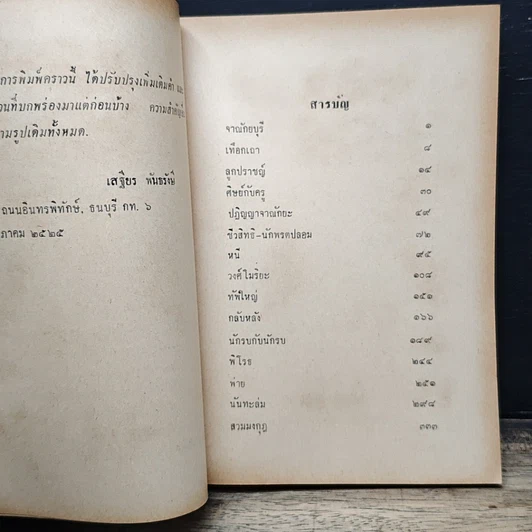 การพิมพ์คราวนี้ ได้ปรับปรุงเพิ่มเติมคำ และ
วนที่บกพร่องมาแต่ก่อนบ้าง ความสำคัญ
ามรูปเดิมทั้งหมด.
เสฐียร พันธรังษี
ถนนอินทรพิทักษ์, ธนบุรี กท. ๖
ภาคม ๒๕๒๕
สารบัญ
จาณักยบุรี ๑
เทือกเถา ๘
ลูกปราชญ์ ๑๔
ศิษย์กับครู ๓๐
ปฏิญญาจาณักยะ ๔๙
ชีวสิทธิ-นักพรตปลอม ๗๒
หนี ๙๕
วงศ์โมริยะ ๑๐๘
ทัพใหญ่ ๑๕๑
กลับหลัง ๑๖๖
นักรบกับนักรบ ๑๘๙
พิโรธ ๒๔๔
พ่าย ๒๕๑
นันทะล่ม ๒๙๘
สวมมงกุฎ ๓๓๓